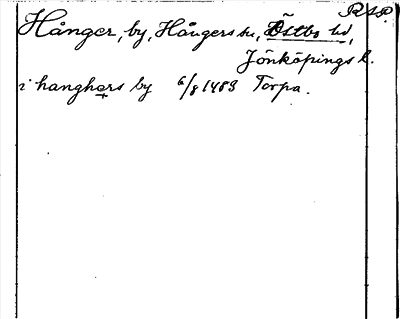 RAP.
Hånger, by, Hångers sn, Östbo hd,
Jönköpings l.
i hanghers by 6/8 1483 Torpa.